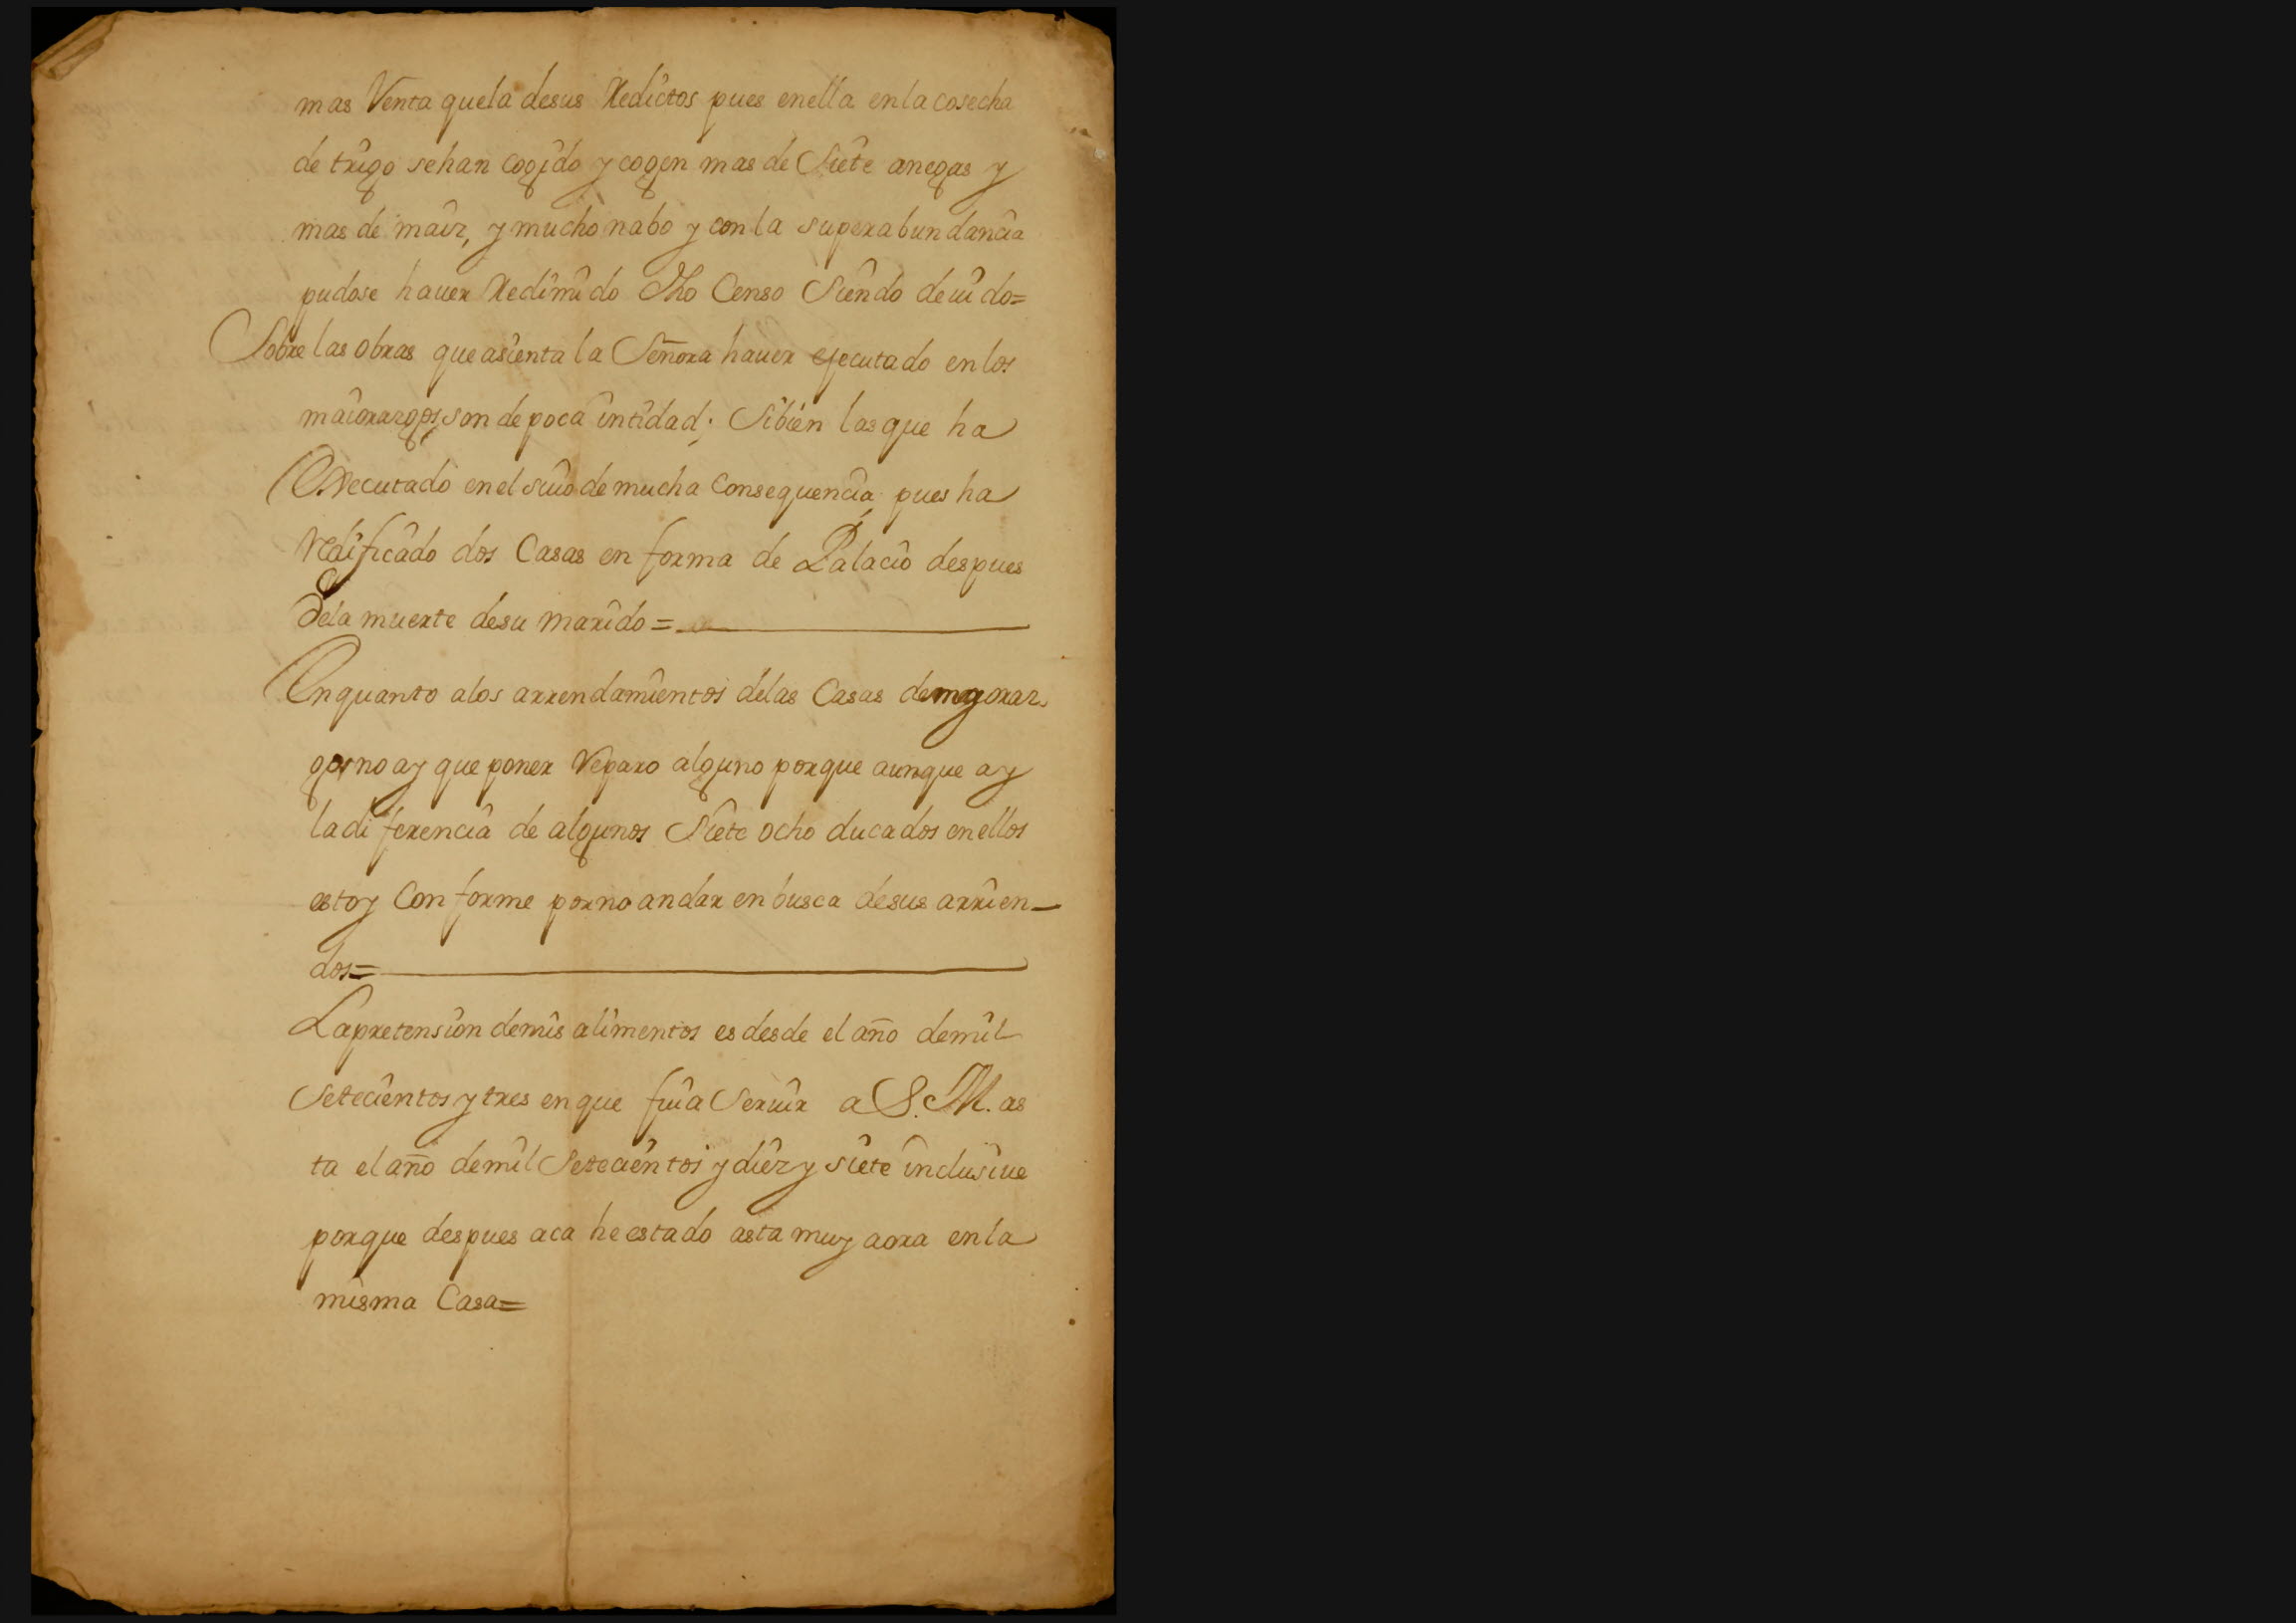 mas Renta quela desus Redictos pues enella enla cosecha
de trigo sehan cogido y cogen mas de Siete anegas y
mas de maiz, y mucho nabo y con la superabundancia
pudose hauer Redimido dho Censo Siendo deuido=
Sobre las obras que asienta la Señora hauer ejecutado en los
maiorazgos, son de poca intidad; Sibien las que ha
Executado en el suio de mucha Consequencia, pues ha
Redificado dos Casas en forma de Palacio despues
dela muerte desu marido=
Enquanto alos arrendamientos delas Casas demayoraz-
gos no ay que poner Reparo alguno porque aunque ay
ladiferencia de algunos Siete ocho ducados en ellos
estoy Conforme porno andar en busca desus arrien-
dos=
Lapretension demis alimentos es desde el año demil
Setecientos y tres en que fui a Seruir a S. M. as
ta el año demil Setecientos y diez y siete inclusiue
porque despues aca he estado asta muy aora en la
misma Casa=